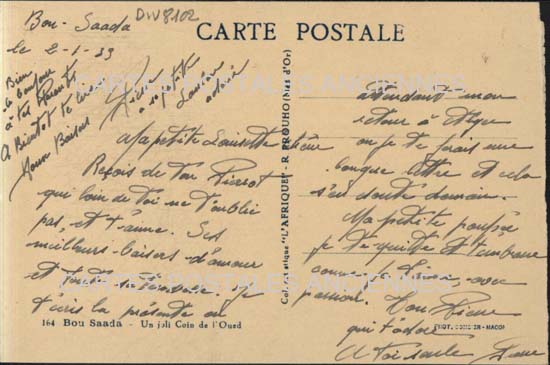 Bou-Saada
DIV8102
le 2-1-39
CARTE POSTALE
Bien
le bonjour
à tes Parents
A Bientôt te lire
Bons Baisers
Pierrot
à sa petite
Louisette
adorée
Ma petite Louisette chérie
Reçois de ton Pierrot
qui loin de toi ne t'oublie
pas, et t'aime. Ses
meilleurs baisers d'amour
et de tendresse. Je
t'écris la présente en
attendant mon
retour à Alger
où je te ferais une
longue lettre et cela
sans doute demain.
Ma petite poupée
je te quitte et t'embrasse
comme je t'aime avec
passion. Ton Pierre
qui t'adore
A toi seule Pierre
Collection Artistique "L'AFRIQUE" - R. PROUHO (Méd. d'Or)
164 Bou Saada - Un joli Coin de l'Oued
PHOT. COMBIER-MACON
CARTES POSTALES ANCIENNES
CARTES POSTALES ANCIENNES